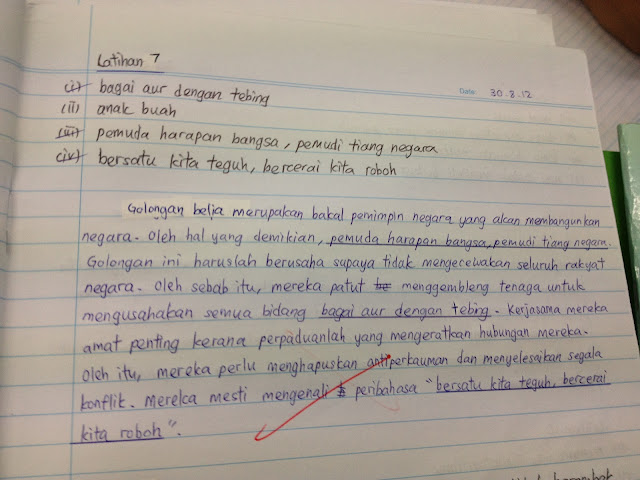 Latihan 7
Date: 30.8.12
(i) bagai aur dengan tebing
(ii) anak buah
(iii) pemuda harapan bangsa, pemudi tiang negara
(iv) bersatu kita teguh, bercerai kita roboh
Golongan belia merupakan bakal pemimpin negara yang akan membangunkan
negara. Oleh hal yang demikian, pemuda harapan bangsa, pemudi tiang negara.
Golongan ini haruslah berusaha supaya tidak mengecewakan seluruh rakyat
negara. Oleh sebab itu, mereka patut menggembleng tenaga untuk
mengusahakan semua bidang bagai aur dengan tebing. Kerjasama mereka
amat penting kerana perpaduanlah yang mengeratkan hubungan mereka.
Oleh itu, mereka perlu menghapuskan antiperkauman dan menyelesaikan segala
konflik. Mereka mesti mengenali peribahasa "bersatu kita teguh, bercerai
kita roboh".